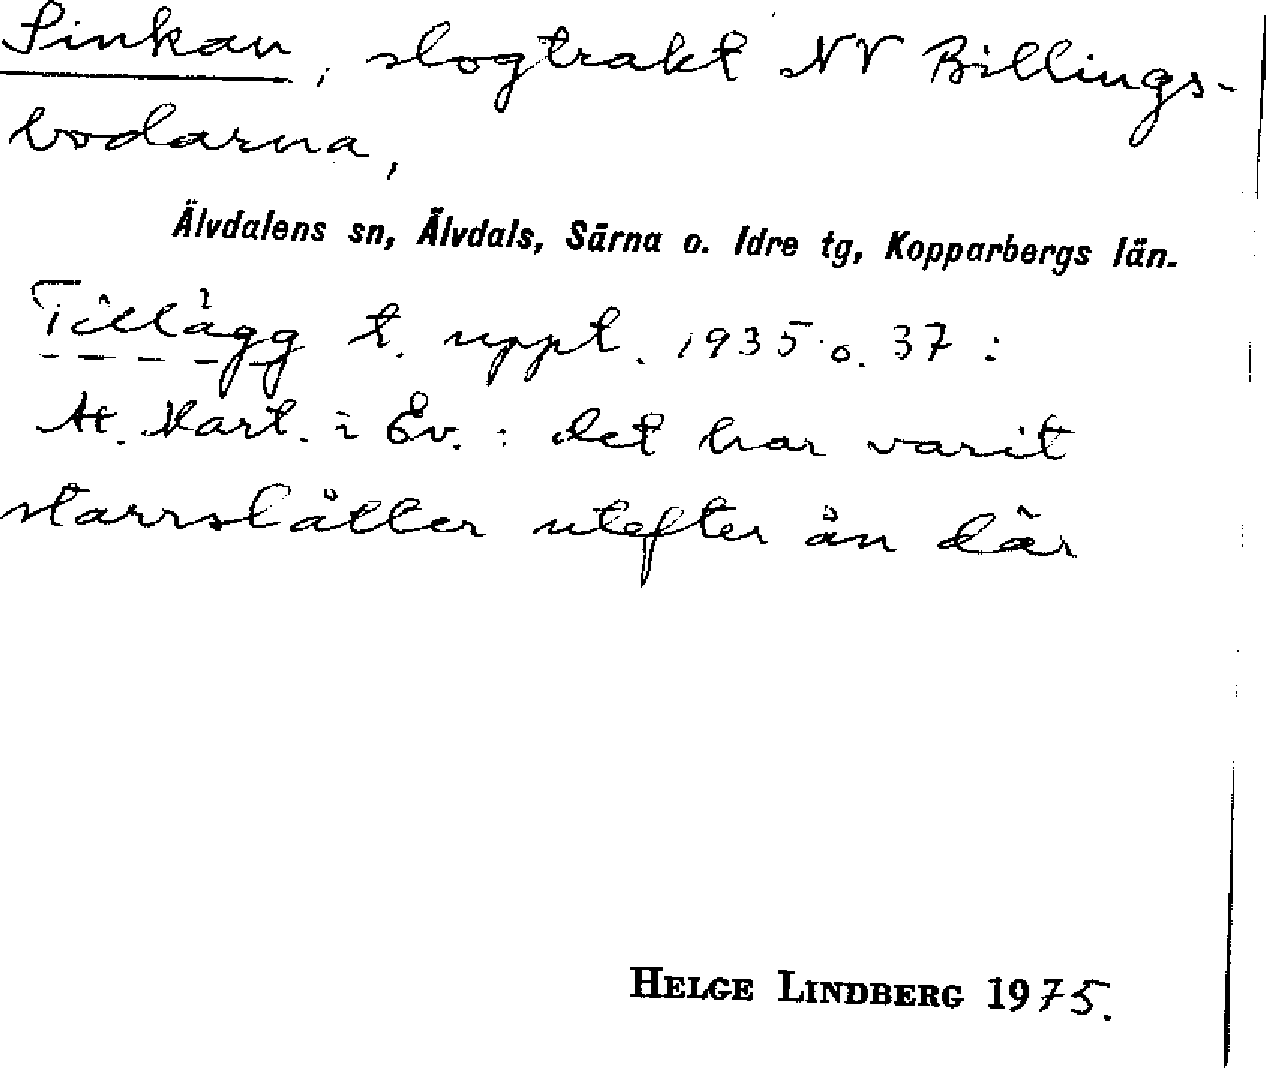 Sinkan, slogtrakt NV Billings-
bodarna,
Älvdalens sn, Älvdals, Särna o. Idre tg, Kopparbergs län.
Tillägg t. uppt. 1935 o. 37:
At. Mart. i Ev.: det har varit
starrslåtter utefter ån där
HELGE LINDBERG 1975.